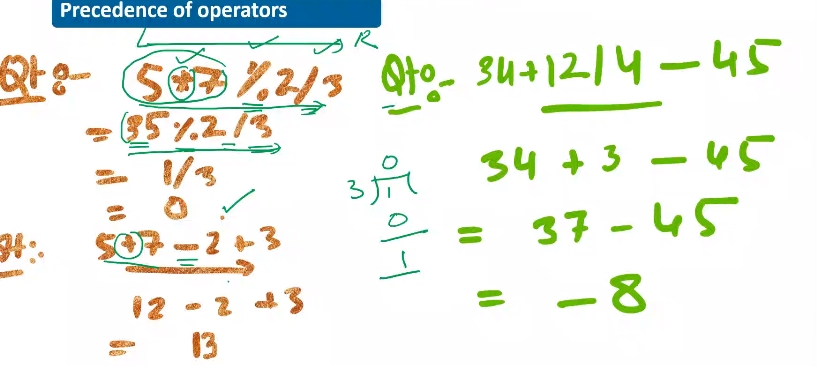 Precedence of operators
L R
Qt:- 5 * 7 % 2 / 3
= 35 % 2 / 3
= 1/3
= 0
Qt:- 5 + 7 - 2 + 3
12 - 2 + 3
= 13
0
3) 1
0
1
Qt:- 34 + 12 / 4 - 45
34 + 3 - 45
= 37 - 45
= - 8